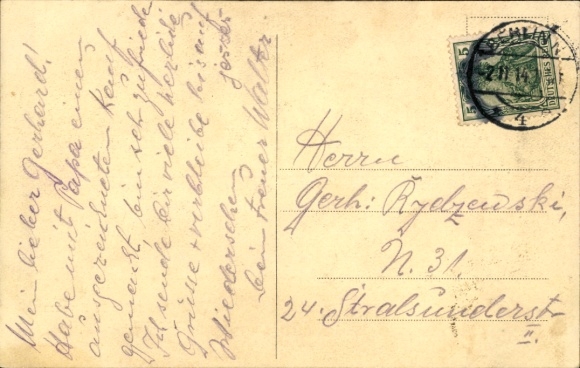 Mein lieber Gerhard!
Habe mit Papa einen
ausgezeichneten Kauf
gemacht bin sehr zufrieden
Ich sende dir viele herzliche
Grüsse + verbleibe bis auf
Wiedersehen
dein treuer Walter
BERLIN N
2.11.14
* 4
5
5
DEUTSCHES
Herrn
Gerh: Rydzewski,
N. 31
24. Stralsunderstr
II.